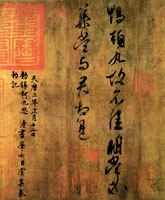 鴨頭丸故不佳明當必
集當與君相見
天曆三年正月十二日
敕賜柯九思侍書學士臣虞集奉
敕記